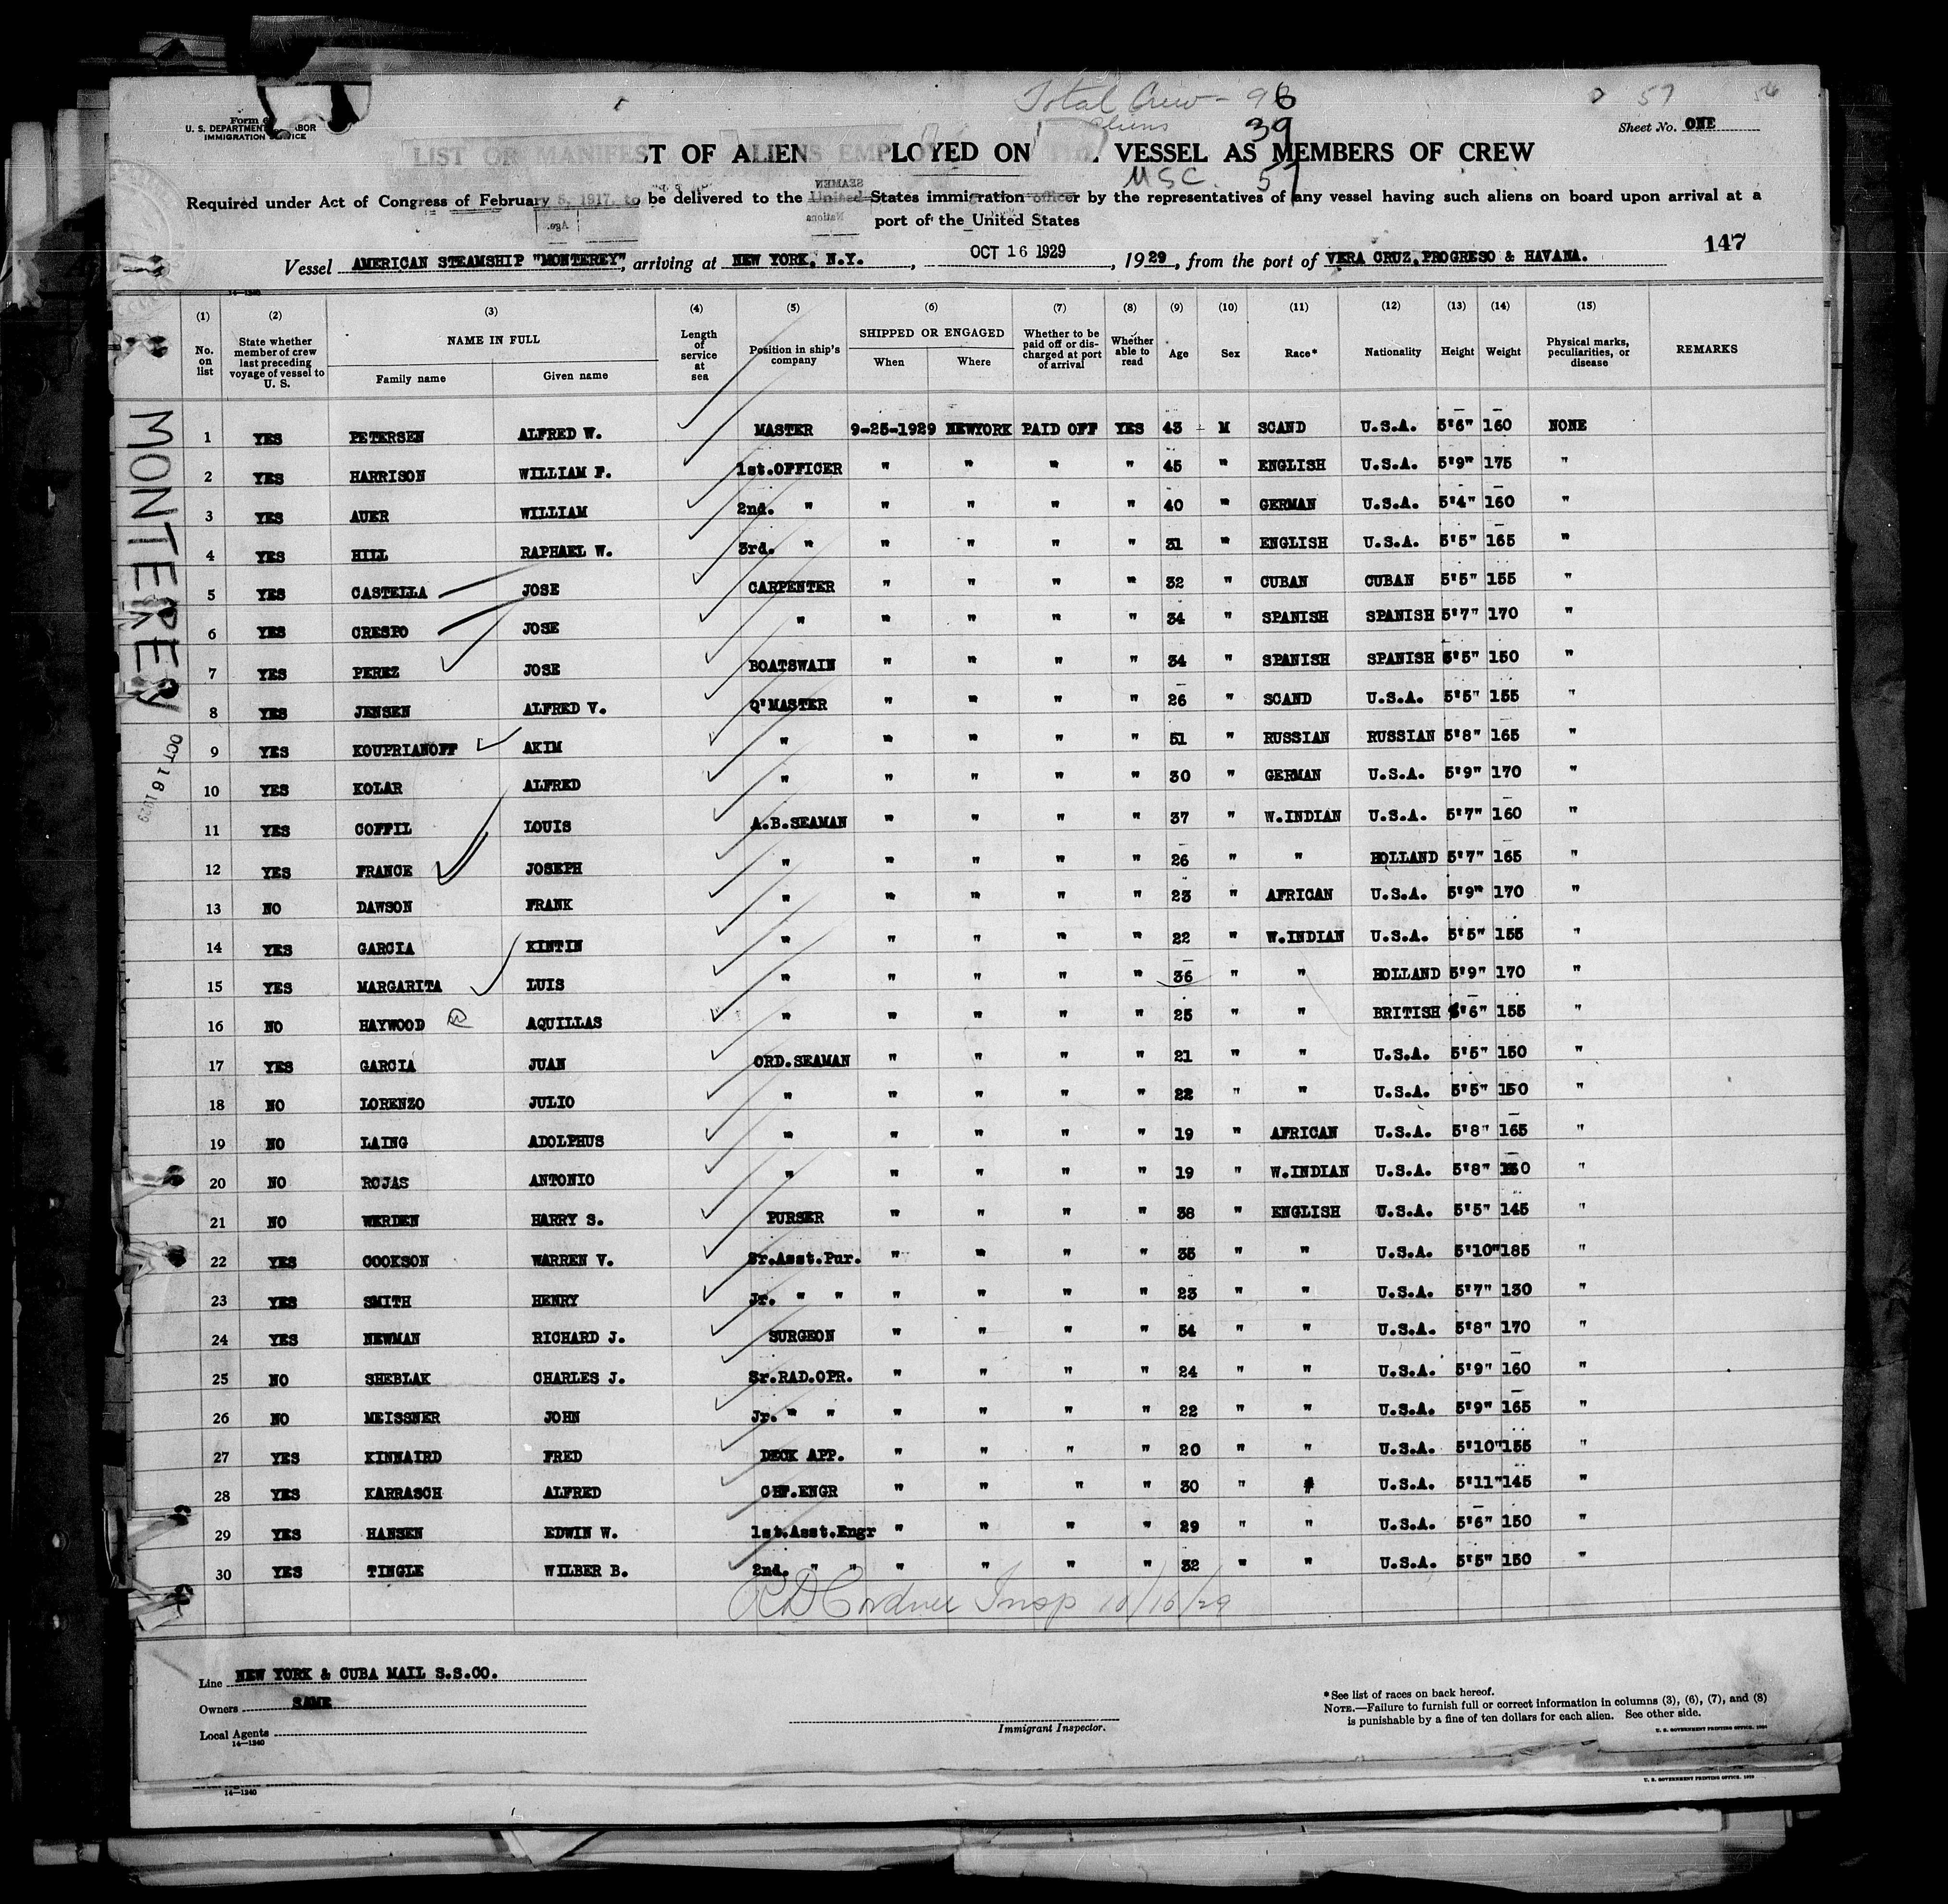 Total Crew - 96
aliens 39
57 56
Form 6
U. S. DEPARTMENT LABOR
IMMIGRATION SERVICE
Sheet No. ONE
LIST OR MANIFEST OF ALIENS EMPLOYED ON VESSEL AS MEMBERS OF CREW
U S C. 57
Required under Act of Congress of February 5, 1917, to be delivered to the United States immigration officer by the representatives of any vessel having such aliens on board upon arrival at a
port of the United States
147
Vessel AMERICAN STEAMSHIP "MONTEREY", arriving at NEW YORK, N.Y., OCT 16 1929, 1929, from the port of VERA CRUZ, PROGRESO & HAVANA.
14—1240
(1) No. on list (2) State whether member of crew last preceding voyage of vessel to U. S. (3) NAME IN FULL Family name Given name (4) Length of service at sea (5) Position in ship's company (6) SHIPPED OR ENGAGED When Where (7) Whether to be paid off or discharged at port of arrival (8) Whether able to read (9) Age (10) Sex (11) Race* (12) Nationality (13) Height (14) Weight (15) Physical marks, peculiarities, or disease REMARKS
MONTEREY
OCT 16 1929
1 YES PETERSEN ALFRED W. MASTER 9-25-1929 NEWYORK PAID OFF YES 43 M SCAND U.S.A. 5'6" 160 NONE
2 YES HARRISON WILLIAM F. 1st.OFFICER " " " " 45 " ENGLISH U.S.A. 5'9" 175 "
3 YES AUER WILLIAM 2nd. " " " " " 40 " GERMAN U.S.A. 5'4" 160 "
4 YES HILL RAPHAEL W. 3rd. " " " " " 31 " ENGLISH U.S.A. 5'5" 165 "
5 YES CASTELLA JOSE CARPENTER " " " " 32 " CUBAN CUBAN 5'5" 155 "
6 YES CRESPO JOSE " " " " " 34 " SPANISH SPANISH 5'7" 170 "
7 YES PEREZ JOSE BOATSWAIN " " " " 34 " SPANISH SPANISH 5'5" 150 "
8 YES JENSEN ALFRED V. Q'MASTER " " " " 26 " SCAND U.S.A. 5'5" 155 "
9 YES KOUPRIANOFF AKIM " " " " " 51 " RUSSIAN RUSSIAN 5'8" 165 "
10 YES KOLAR ALFRED " " " " " 30 " GERMAN U.S.A. 5'9" 170 "
11 YES COFFIL LOUIS A.B.SEAMAN " " " " 37 " W.INDIAN U.S.A. 5'7" 160 "
12 YES FRANCE JOSEPH " " " " " 26 " " HOLLAND 5'7" 165 "
13 NO DAWSON FRANK " " " " " 23 " AFRICAN U.S.A. 5'9" 170 "
14 YES GARCIA KINTIN " " " " " 22 " W.INDIAN U.S.A. 5'5" 155 "
15 YES MARGARITA LUIS " " " " " 36 " " HOLLAND 5'9" 170 "
16 NO HAYWOOD AQUILLAS " " " " " 25 " " BRITISH 5'6" 155 "
17 YES GARCIA JUAN ORD.SEAMAN " " " " 21 " " U.S.A. 5'5" 150 "
18 NO LORENZO JULIO " " " " " 22 " " U.S.A. 5'5" 150 "
19 NO LAING ADOLPHUS " " " " " 19 " AFRICAN U.S.A. 5'8" 165 "
20 NO ROJAS ANTONIO " " " " " 19 " W.INDIAN U.S.A. 5'8" "
21 NO WERDEN HARRY S. PURSER " " " " 38 " ENGLISH U.S.A. 5'5" 145 "
22 YES COOKSON WARREN V. Sr.Asst.Pur. " " " " 35 " " U.S.A. 5'10" 185 "
23 YES SMITH HENRY Jr. " " " " " " 23 " " U.S.A. 5'7" 130 "
24 YES NEWMAN RICHARD J. SURGEON " " " " 54 " " U.S.A. 5'8" 170 "
25 NO SHEBLAK CHARLES J. Sr.RAD.OPR. " " " " 24 " " U.S.A. 5'9" 160 "
26 NO MEISSNER JOHN Jr. " " " " " " 22 " " U.S.A. 5'9" 165 "
27 YES KINNAIRD FRED DECK APP. " " " " 20 " " U.S.A. 5'10" 155 "
28 YES KARRASCH ALFRED CHF.ENGR " " " " 30 " " U.S.A. 5'11" 145 "
29 YES HANSEN EDWIN W. 1st.Asst.Engr " " " " 29 " " U.S.A. 5'6" 150 "
30 YES TINGLE WILBER B. 2nd. " " " " " " 32 " " U.S.A. 5'5" 150 "
Insp 10/16/29
Line NEW YORK & CUBA MAIL S.S.CO.
Owners SAME
Local Agents
14—1240
Immigrant Inspector.
*See list of races on back hereof.
NOTE.—Failure to furnish full or correct information in columns (3), (6), (7), and (8)
is punishable by a fine of ten dollars for each alien. See other side.
U. S. GOVERNMENT PRINTING OFFICE.
14—1240
U. S. GOVERNMENT PRINTING OFFICE.